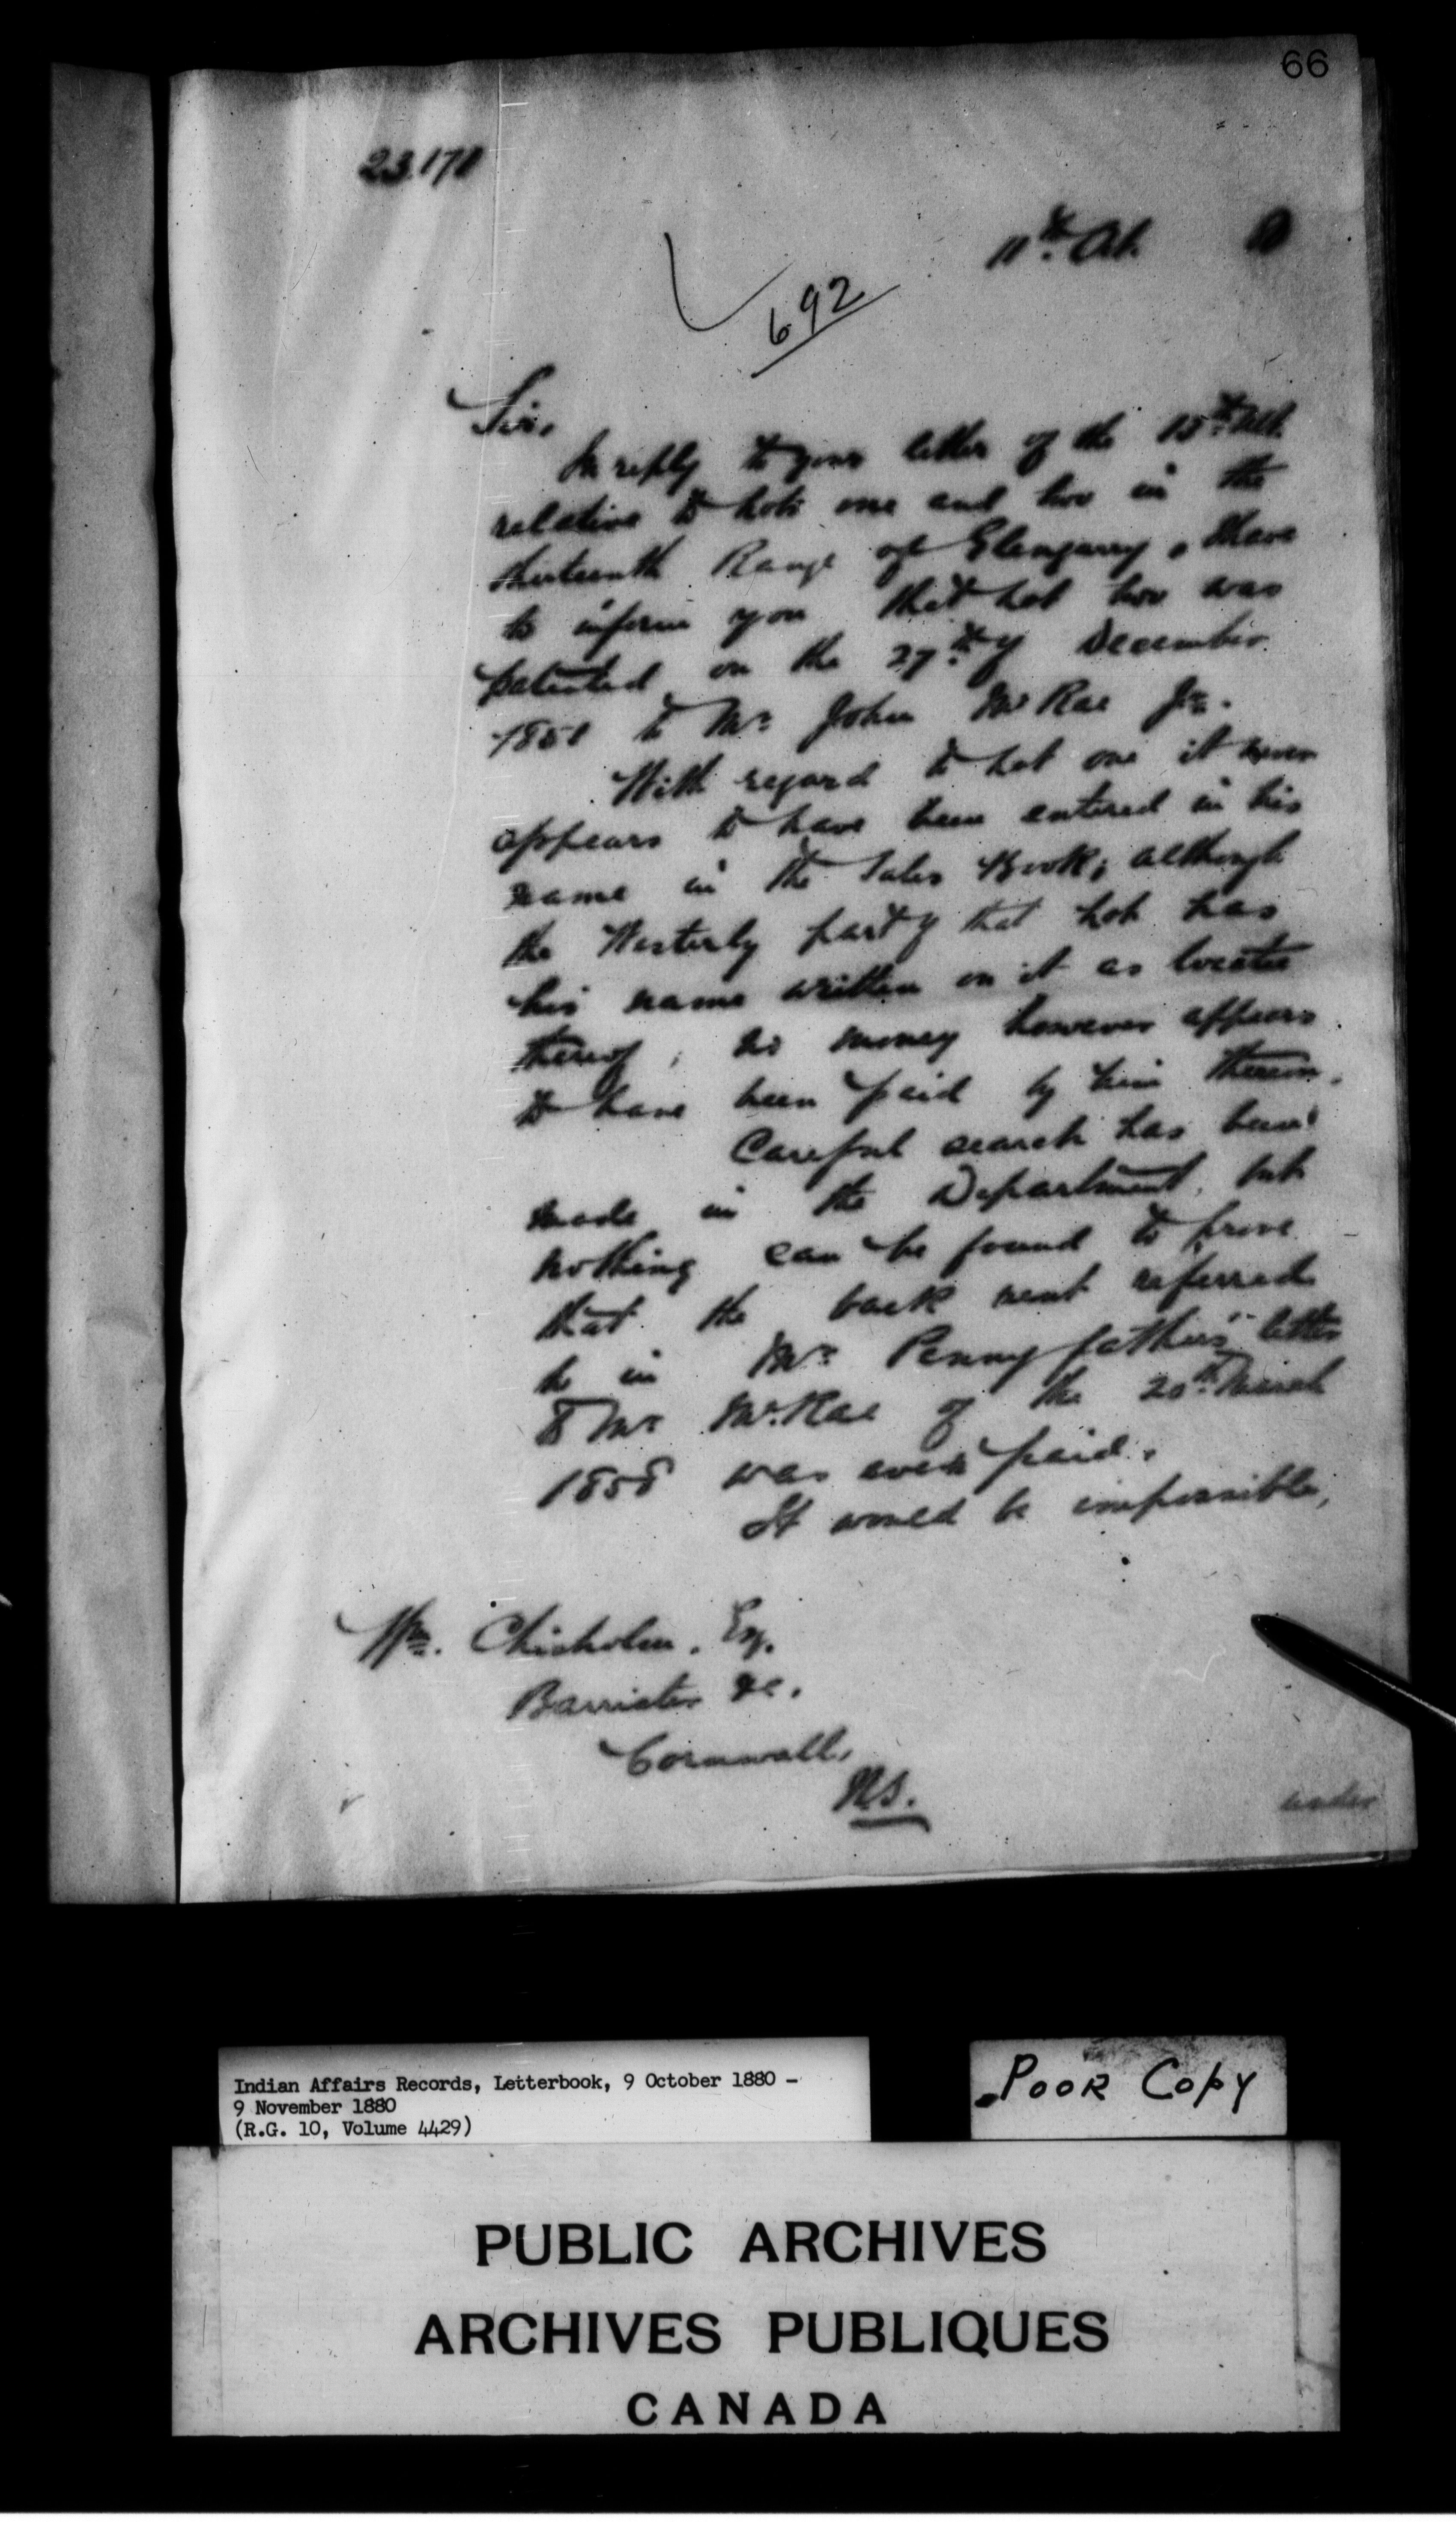 66
23.178
11th Oct. 0
692
Sir,
In reply to your letter of the 15th Ult.
relative to Lots one and two in the
thirteenth Range of Glengarry, I have
to inform you that Lot two was
patented on the 27th of December
1851 to Mr John McRae Jr.
With regard to Lot one it never
appears to have been entered in his
name in the Sales Book; although
the Westerly part of that Lot has
his name written on it as locatee
thereof; no money however appears
to have been paid by him thereon.
Careful search has been
made in the Department, but
nothing can be found to prove
that the back rent referred
to in Mr Pennyfather's letter
to Mr McRae of the 20th March
1858 was ever paid.
It would be impossible,
Wm. Chisholm, Esq.
Barrister &c.
Cornwall,
under
Indian Affairs Records, Letterbook, 9 October 1880 -
9 November 1880
(R.G. 10, Volume 4429)
Poor Copy
PUBLIC ARCHIVES
ARCHIVES PUBLIQUES
CANADA